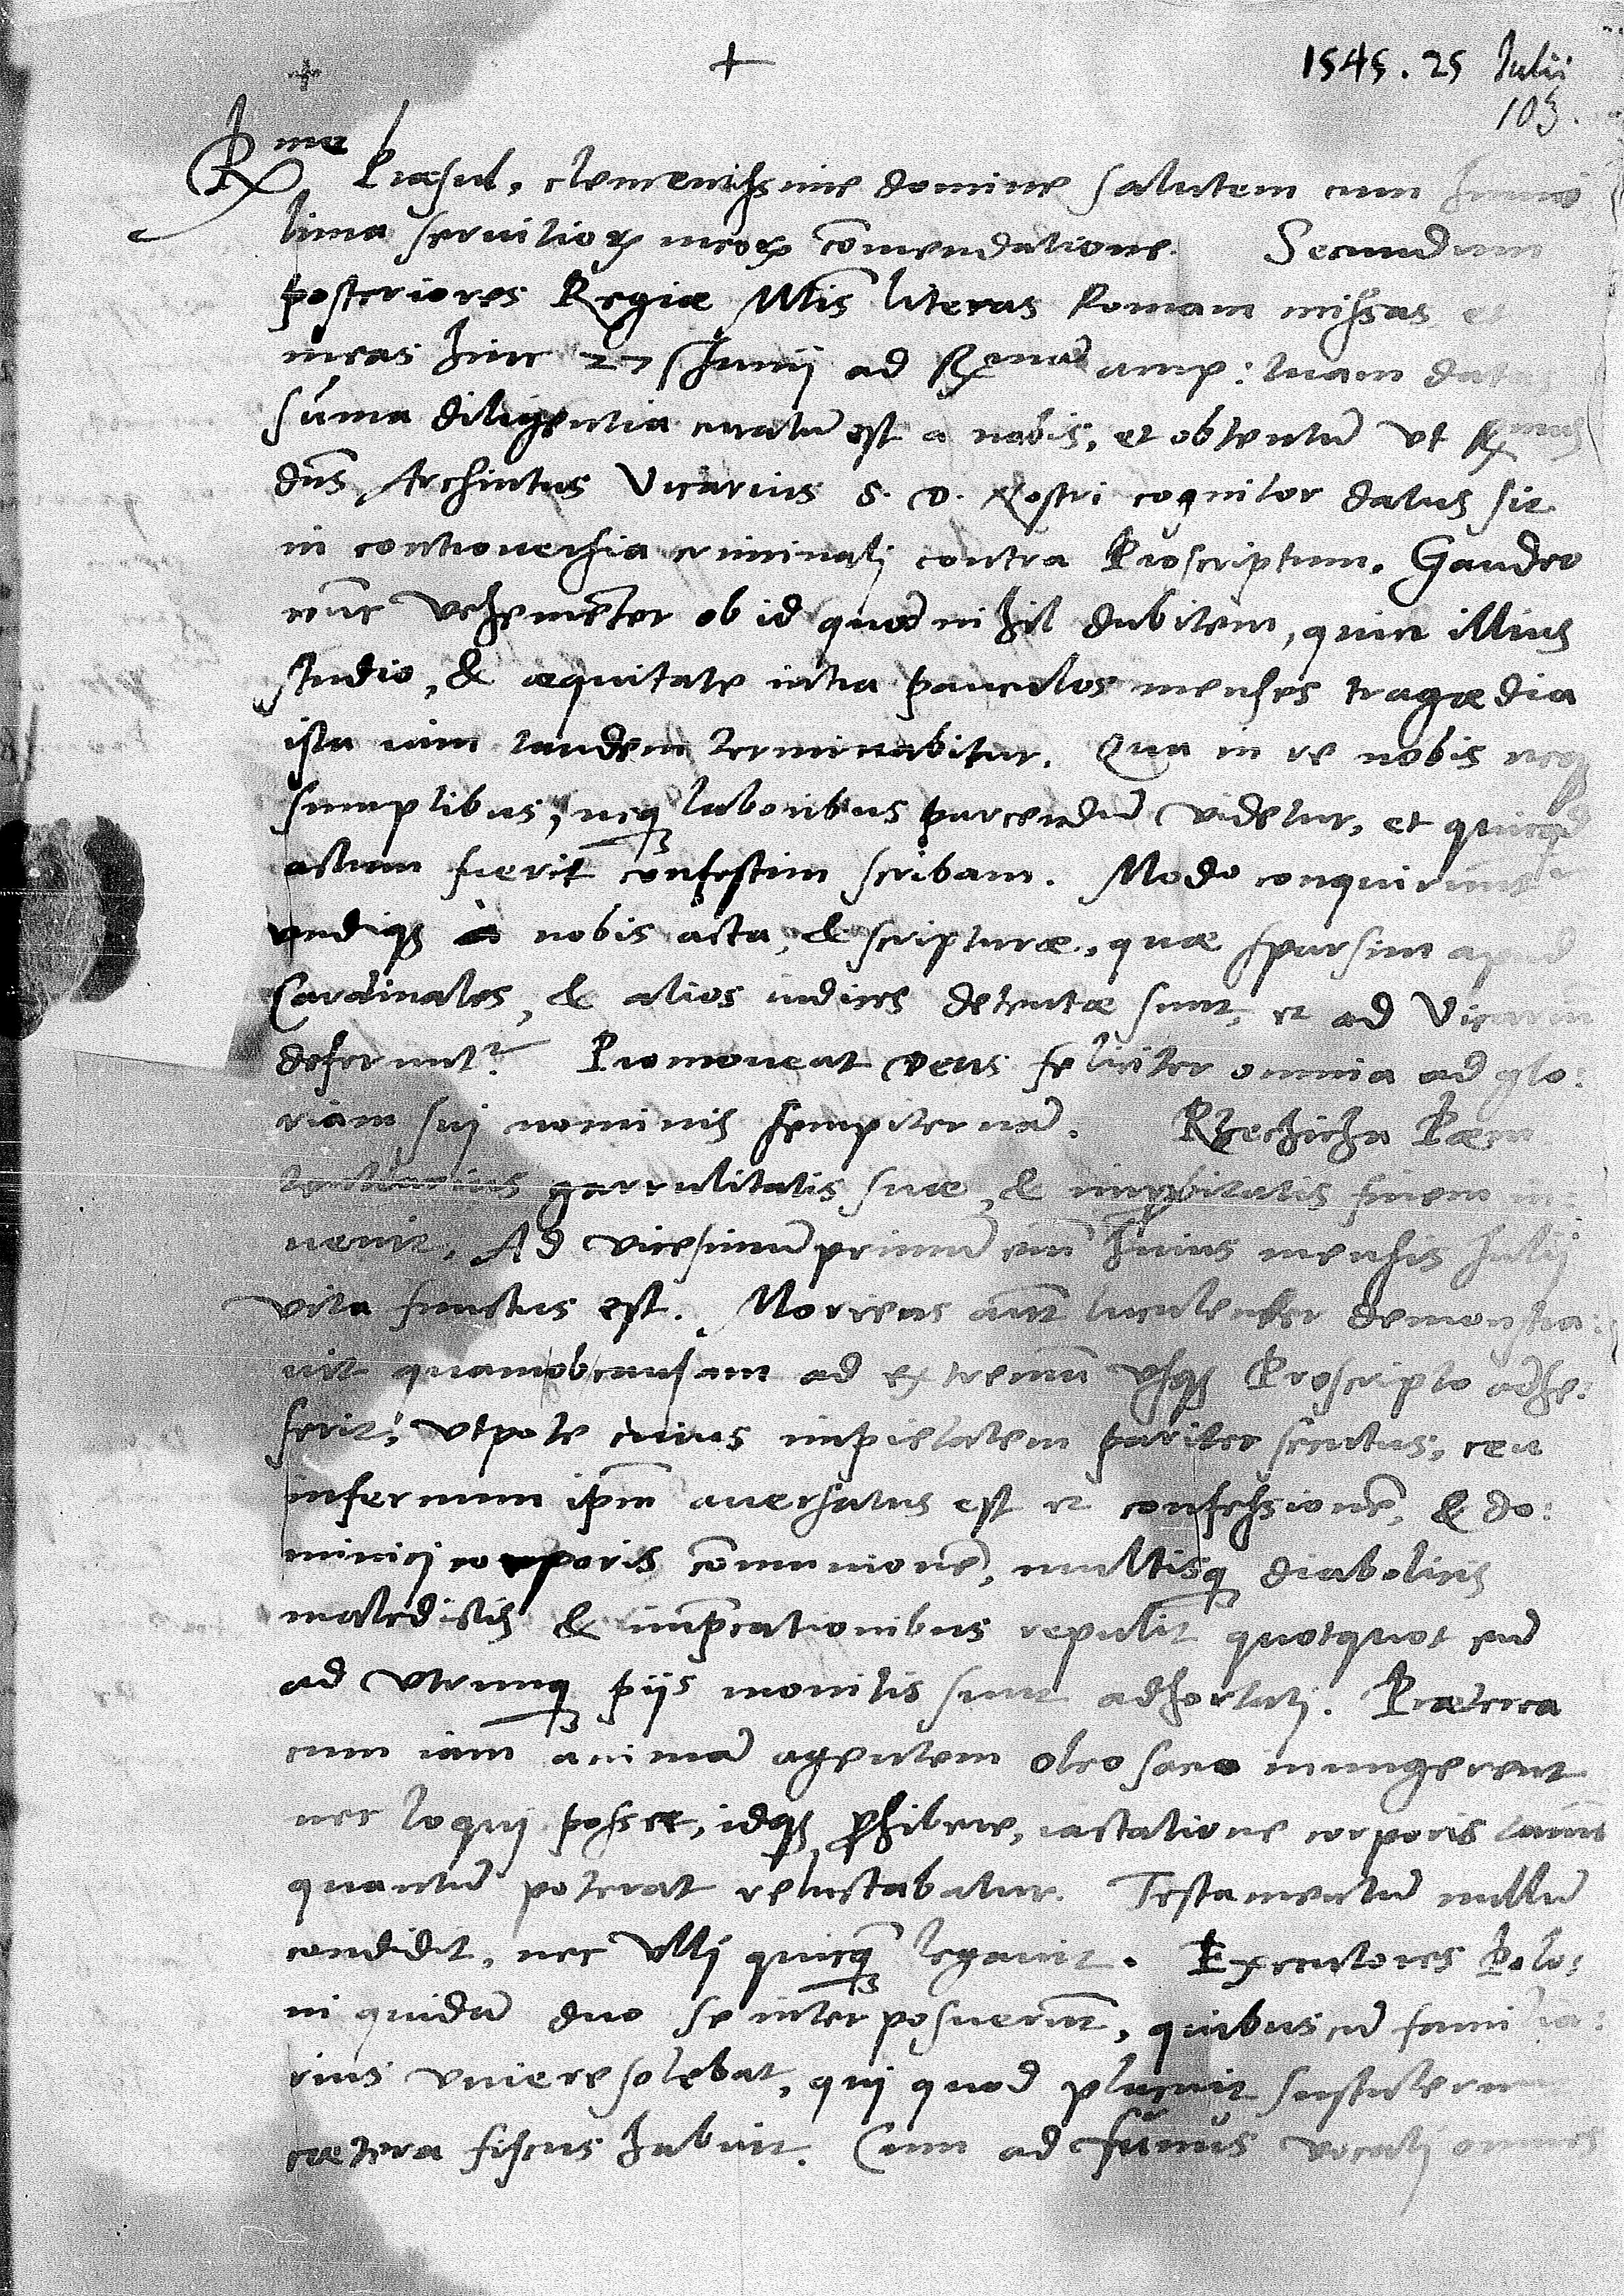 + + 1545. 25 Julii
103.
Rme Præsul, clementissime domine salutem cum humil
lima seruitior meor comendatione. Secundum
posteriores Regiæ Mtis literas Romam missas et
meas hinc 27 Junij ad Rmam amp: tuam datas
suma diligentia curatu est a nobis, et obtentu vt Rmus
dns Archintus Vicarius S. D. Nostri cognitor datus sit
in controuersia criminalj contra Proscriptum. Gaudeo
vehementer ob id quod nihil dubitem, quin illius
studio, & æquitate intra pauculos menses tragædia
ista iam tandem terminabitur. Qua in re nobis neq
sumptibus, neq laboribus parcendu videtur, et quicqd
actum fuerit confestim scribam. Modo conquirunt
vndiqz a nobis acta, & scripturæ, quæ sparsim apud
Cardinales, & alios iudices detentæ sunt, et ad Vicariu
deferunt. Promoueat Deus feliciter omnia ad glo:
riam suj nominis sempiterna. Rhechicha Pæni
tentiarius garrulitatis suæ, & improbitatis finem in:
uenit. Ad vicesimu primu eni huius mensis Julij
vita functus est. Moriens aut luculenter demonstra:
uit quamobcausam ad extremu vsqz Proscripto adhe:
serit, vtpote cuius impietatem pariter secutus, ceu
infernum ipm auersatus est et confessione, & do:
minicj corporis comunione, multisq diabolicis
maledictis & imprecationibus repulit quotquot eu
ad vtrunq pijs monitis sunt adhortatj. Præterea
cum iam anima agentem oleo sacro inungerent
nec loquj posset, idqz prohibere, iactatione corporis tamen
quantu poterat reluctabatur. Testamentu nullu
condidit, nec vllj quicq legauit. Executores Polo:
ni quidam duo se interposuerunt, quibuscu familia:
rius viuere solebat, quj quod placuit sustulerunt
cætera fiscus habuit. Cum ad funus vocatj omnes